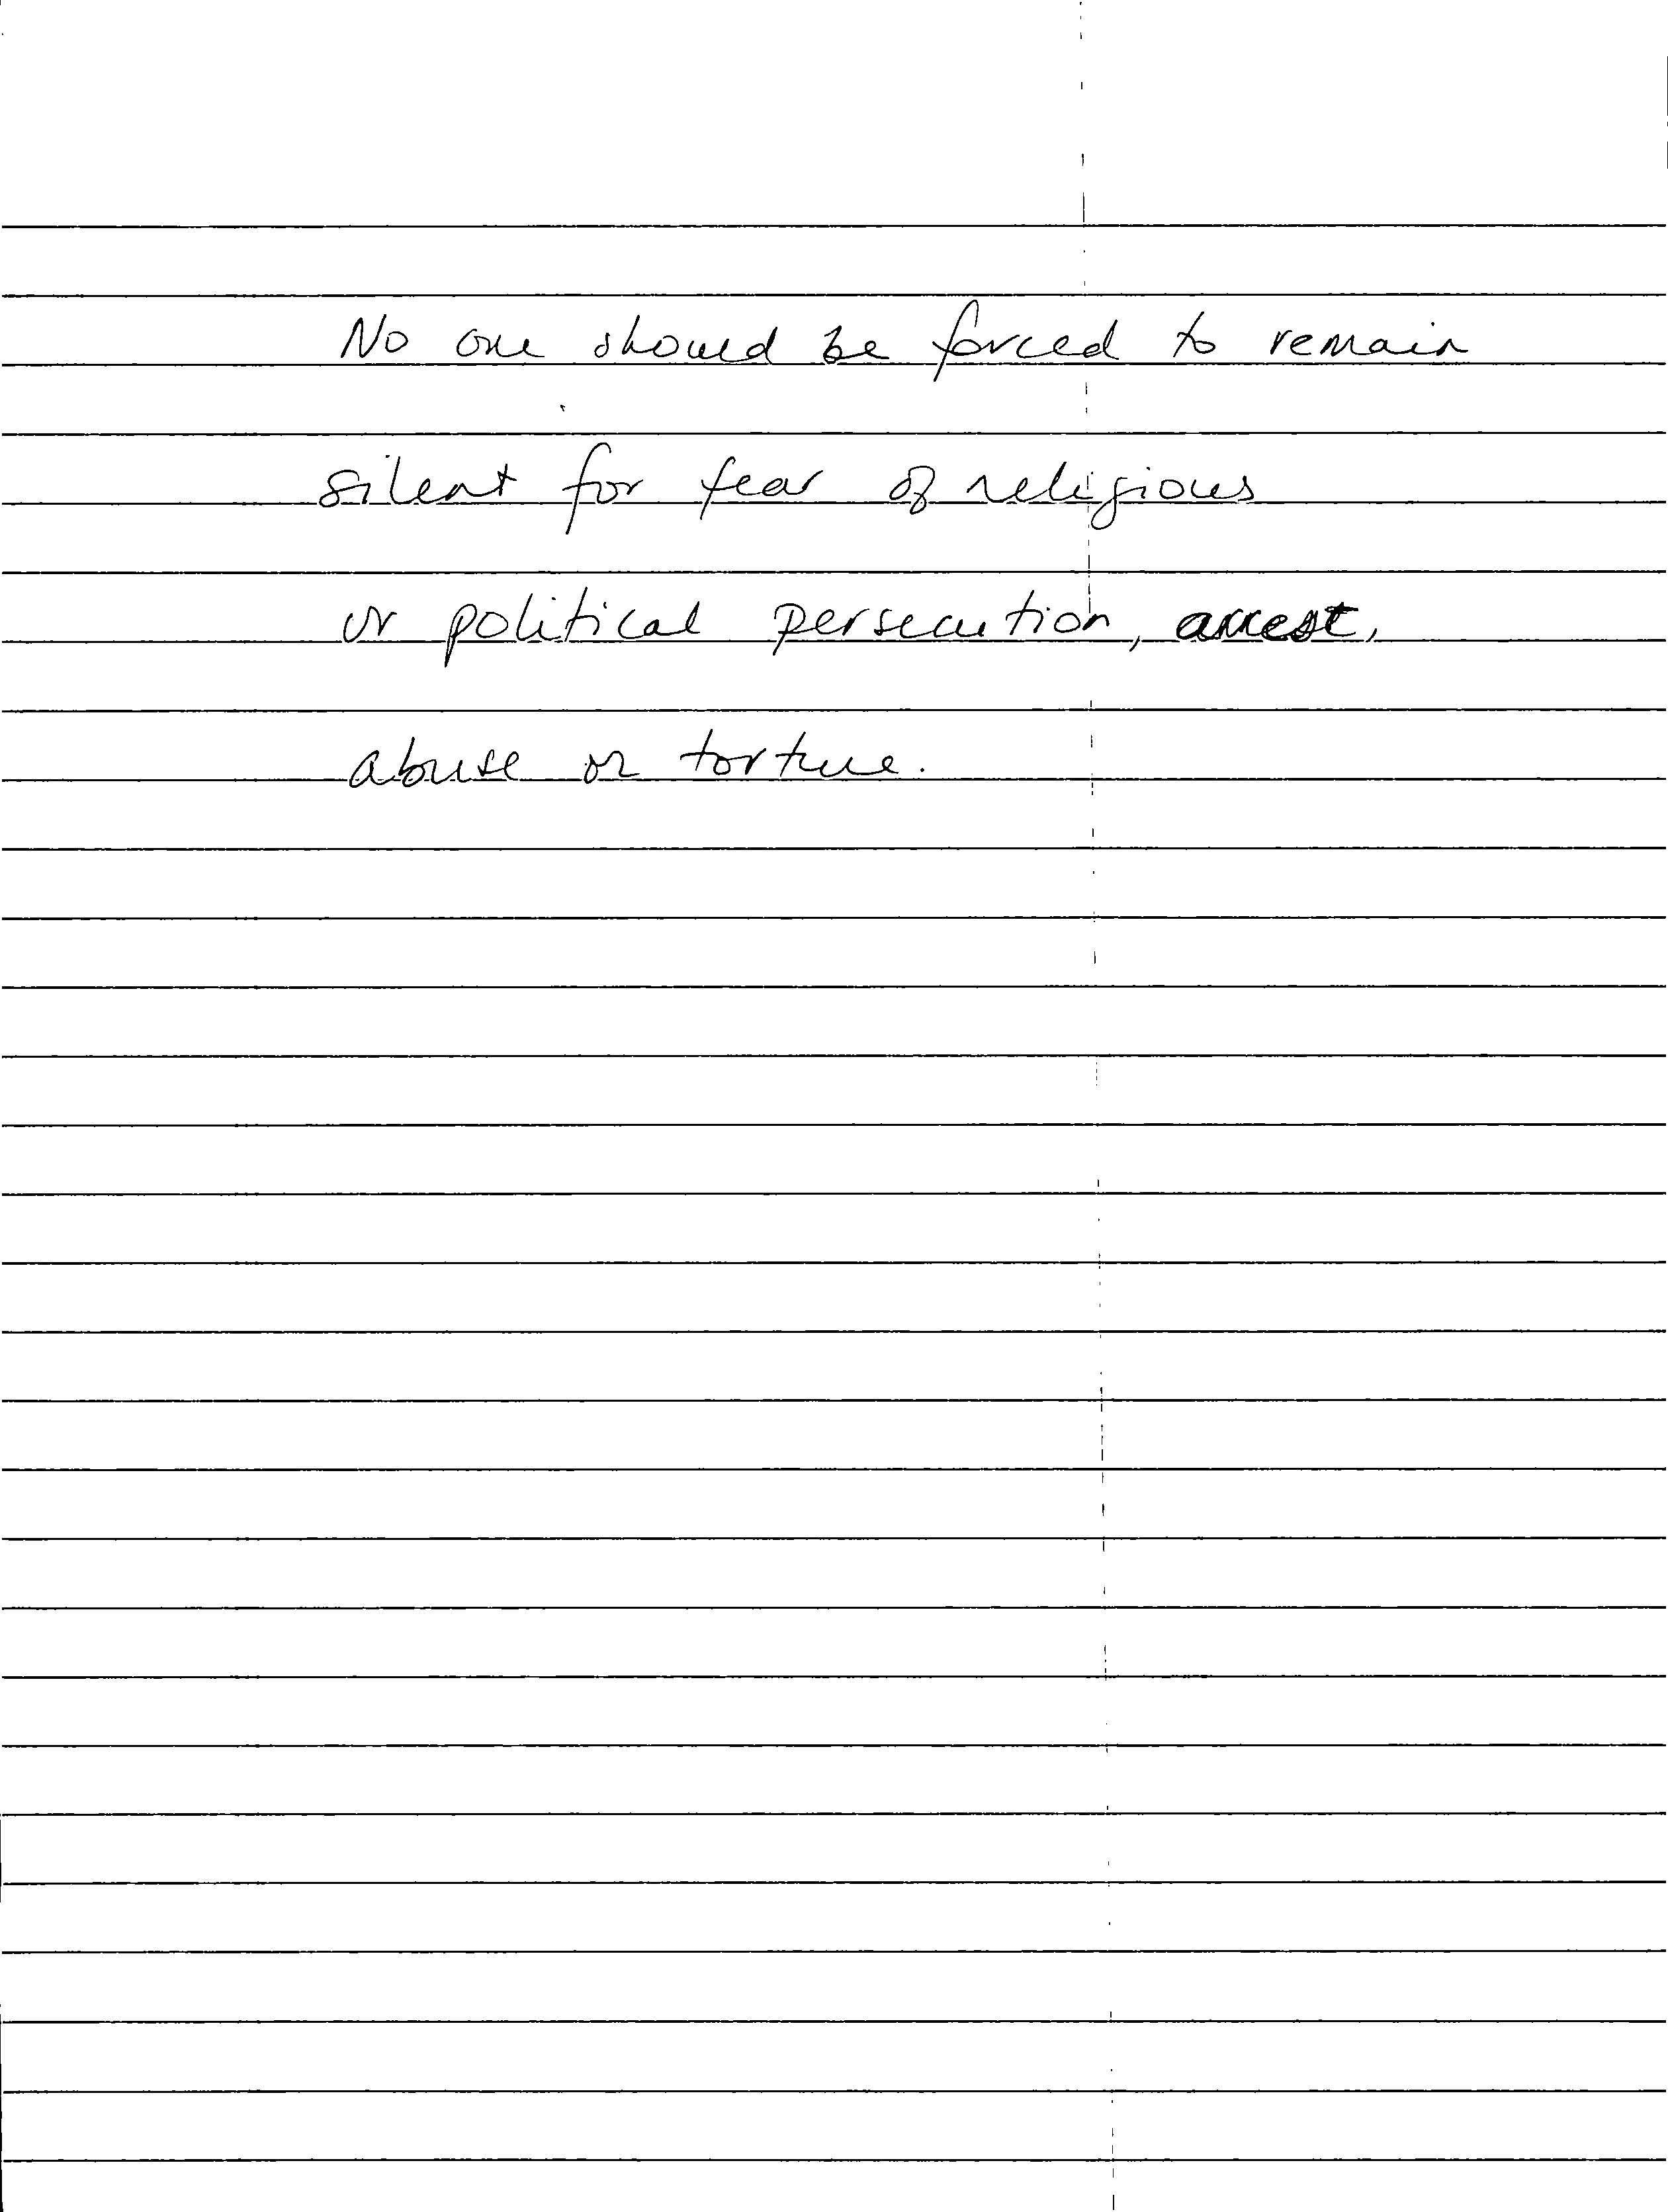 No one should be forced to remain
silent for fear of religious
or political persecution, arrest,
abuse or torture.